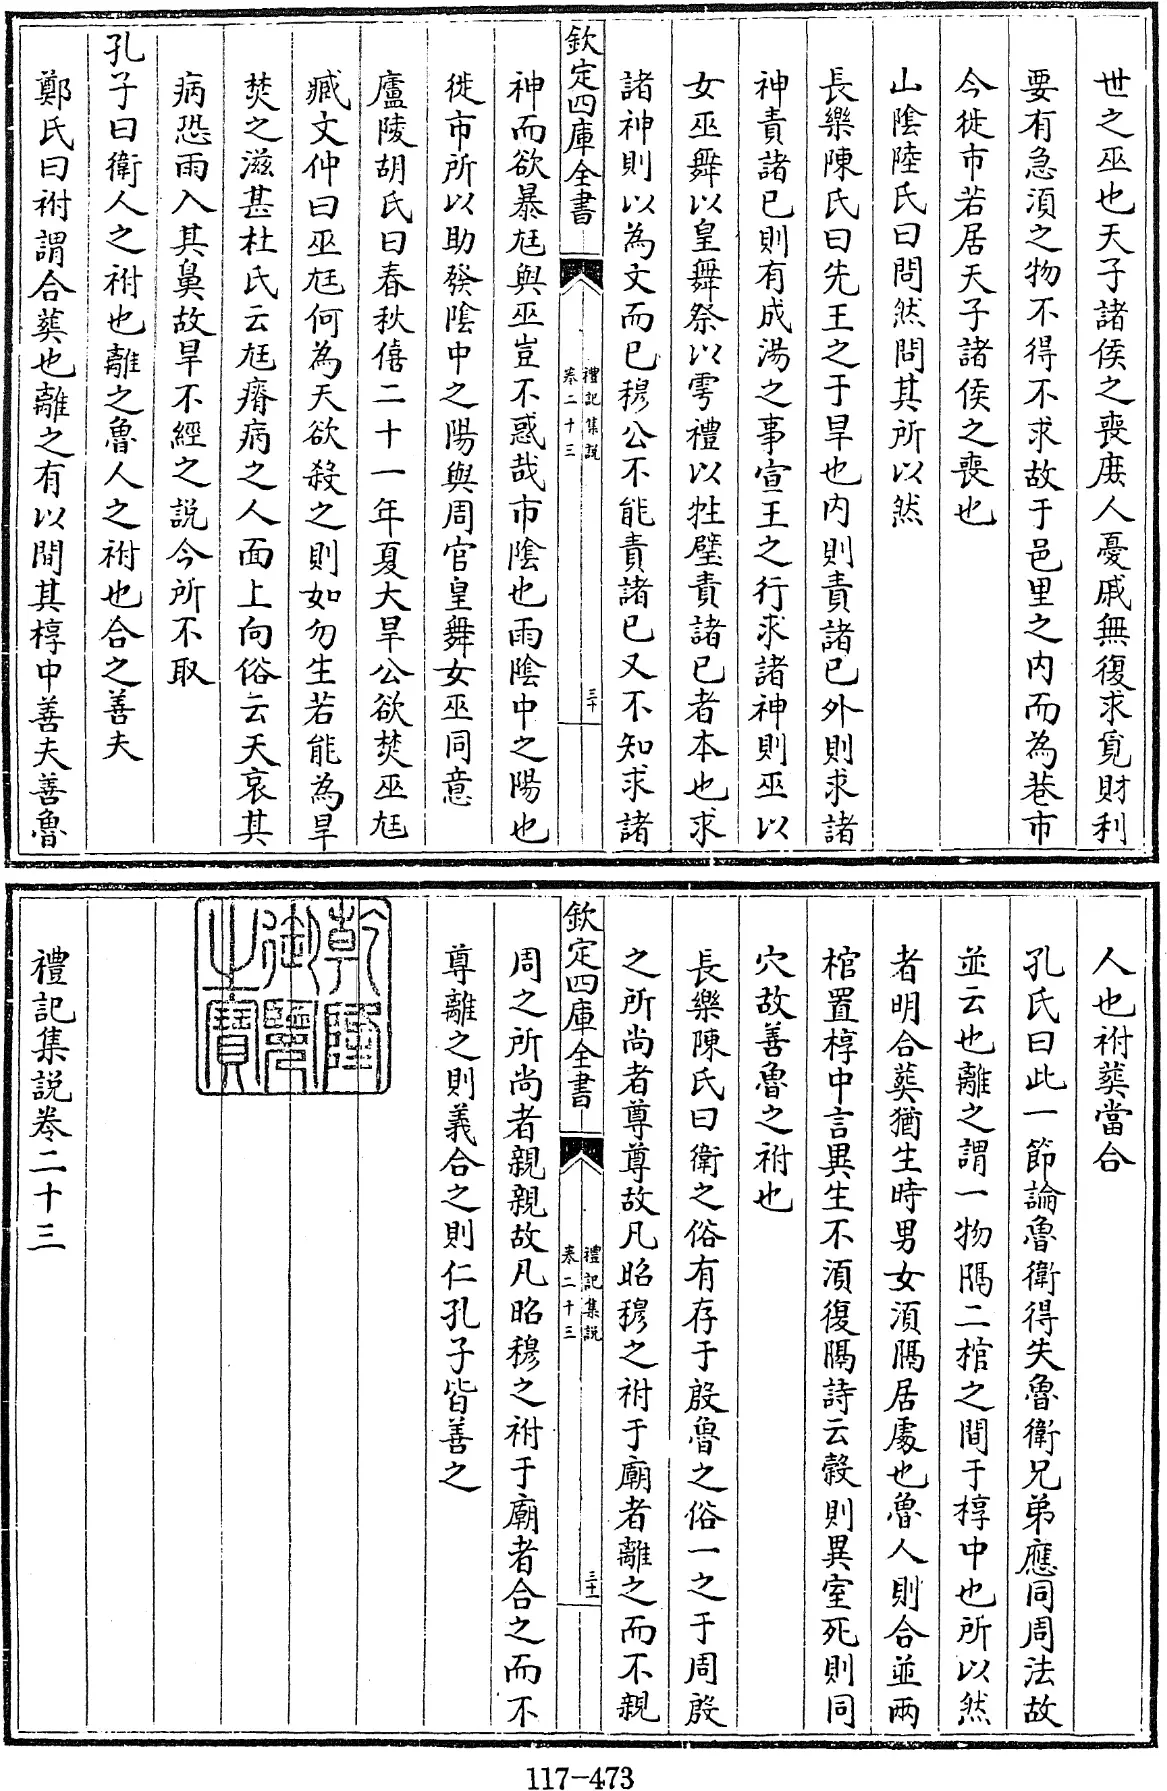 世之巫也天子諸侯之喪庶人憂戚無復求覓財利
要有急湏之物不得不求故于邑里之内而為巷市
今徙市若居天子諸侯之喪也
山隂陸氏曰問然問其所以然
長樂陳氏曰先王之于旱也内則責諸已外則求諸
神責諸已則有成湯之事宣王之行求諸神則巫以
女巫舞以皇舞祭以雩禮以牲璧責諸已者本也求
諸神則以為文而已穆公不能責諸已又不知求諸
欽定四庫全書
禮記集說
卷二十三
三十
神而欲暴尫與巫豈不惑哉市隂也雨隂中之陽也
徙市所以助發隂中之陽與周官皇舞女巫同意
廬陵胡氏曰春秋僖二十一年夏大旱公欲焚巫尫
臧文仲曰巫尫何為天欲殺之則如勿生若能為旱
焚之滋甚杜氏云尫瘠病之人面上向俗云天哀其
病恐雨入其鼻故旱不經之説今所不取
孔子曰衛人之祔也離之魯人之祔也合之善夫
鄭氏曰祔謂合葬也離之有以間其椁中善夫善魯
人也祔葬當合
孔氏曰此一節論魯衛得失魯衛兄弟應同周法故
並云也離之謂一物隔二棺之間于椁中也所以然
者明合葬猶生時男女湏隔居處也魯人則合並兩
棺置椁中言異生不湏復隔詩云榖則異室死則同
穴故善魯之祔也
長樂陳氏曰衛之俗有存于殷魯之俗一之于周殷
之所尚者尊尊故凡昭穆之祔于廟者離之而不親
欽定四庫全書
禮記集說
卷二十三
三十一
周之所尚者親親故凡昭穆之祔于廟者合之而不
尊離之則義合之則仁孔子皆善之
乾隆
御覽
之寶
禮記集說卷二十三
117-473